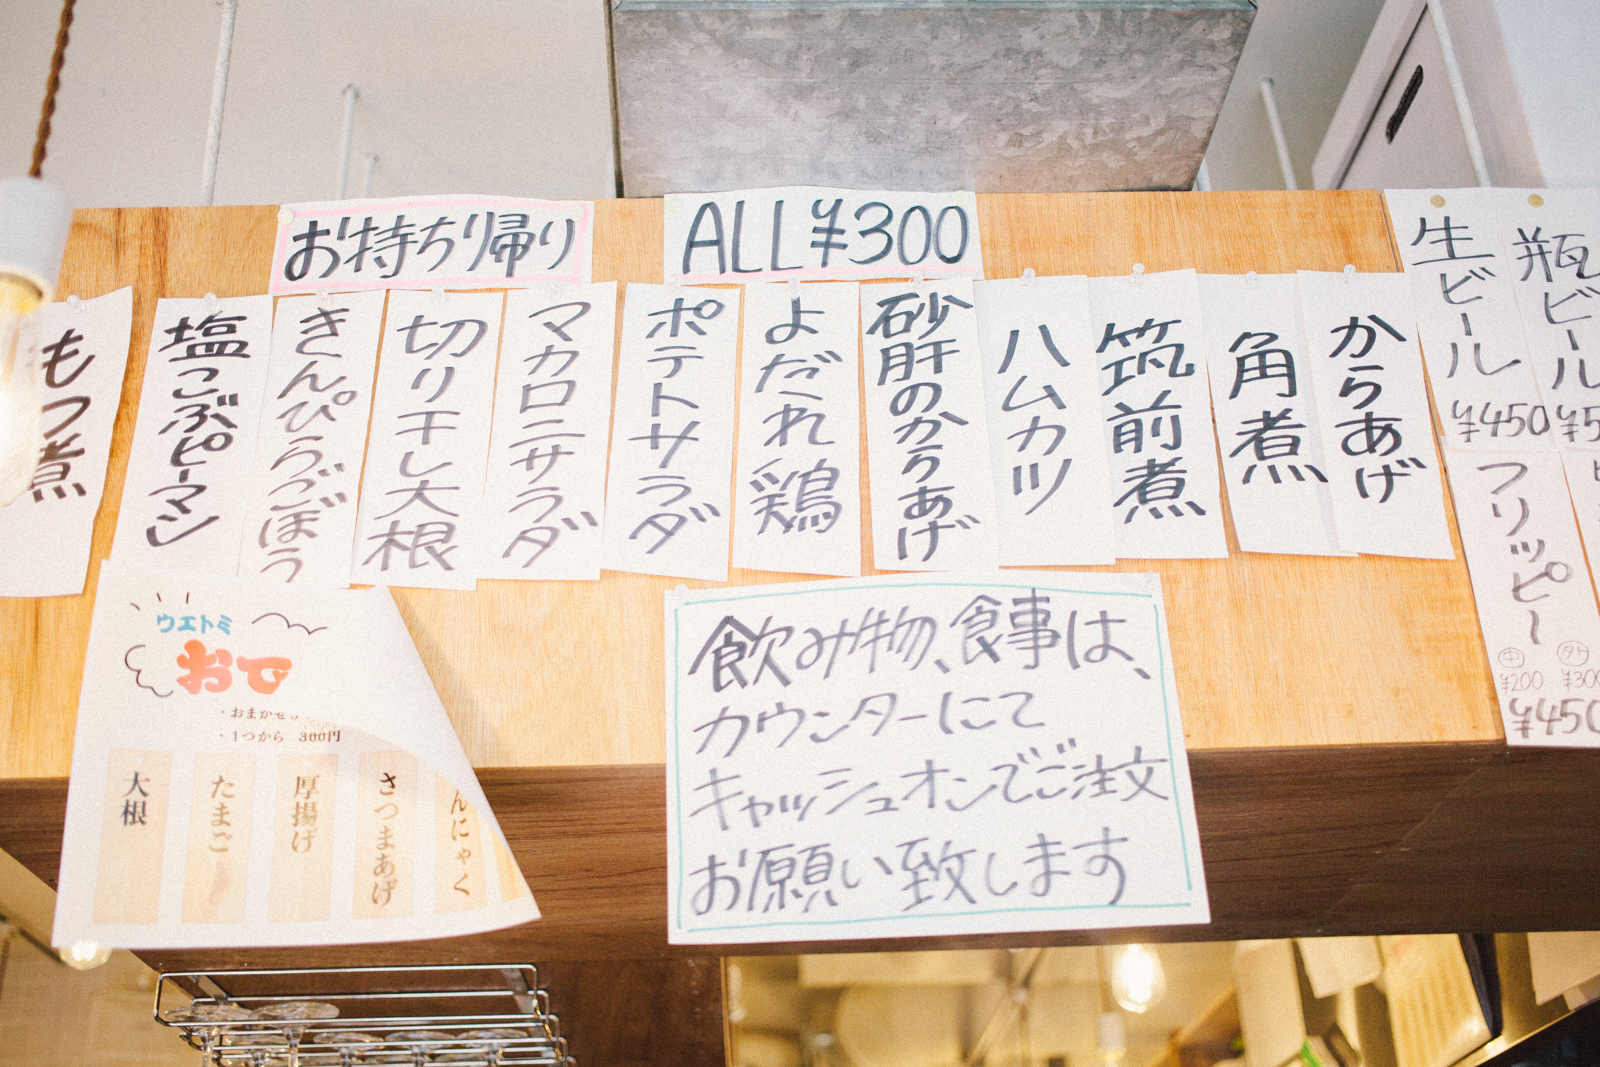 お持ち帰り
ALL ¥300
もつ煮
塩こぶピーマン
きんぴらごぼう
切り干し大根
マカロニサラダ
ポテトサラダ
よだれ鶏
砂肝のからあげ
ハムカツ
筑前煮
角煮
からあげ
生ビール ¥450
瓶ビール ¥5
フリッピー
中 ¥200
外 ¥300
¥450
ウエトミ
おで
・おまかせ
・1つから 300円
大根
たまご
厚揚げ
さつまあげ
んにゃく
飲み物、食事は、
カウンターにて
キャッシュオンでご注文
お願い致します